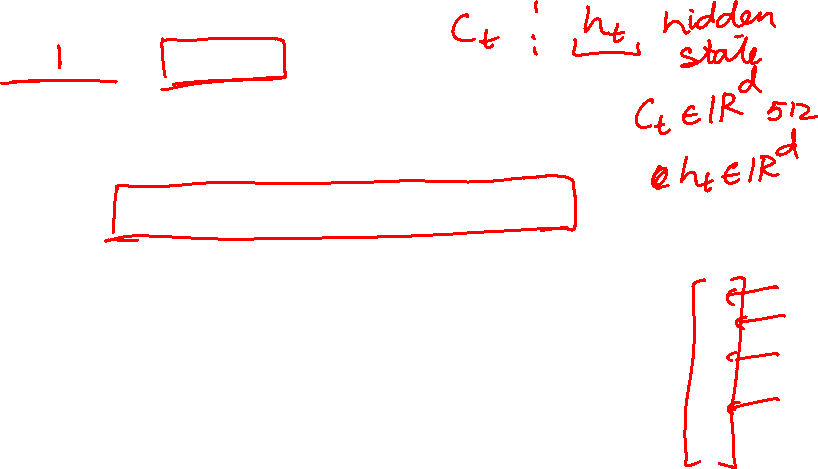 1
C_t ⋮ h_t hidden
state
C_t ∈ IR^d 512
h_t ∈ IR^d